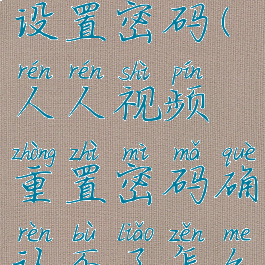 设置密码(
rén rén shì pín
人人视频
zhòng zhì mì mǎ què
重置密码确
rèn bù liǎo zěn me
认不了怎么